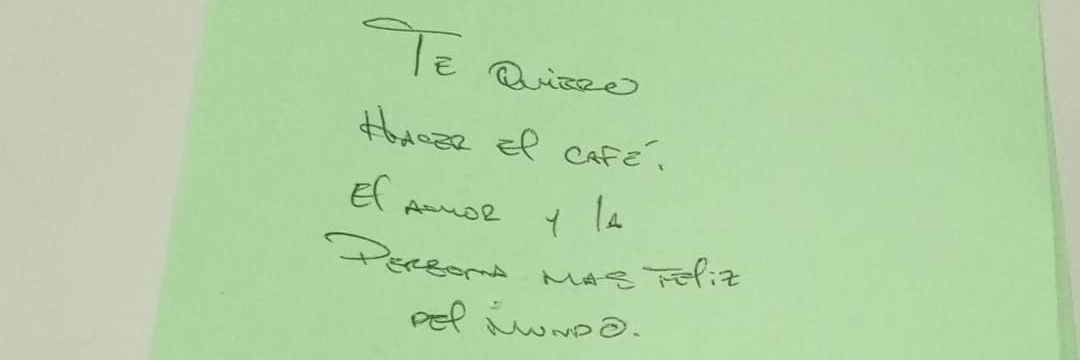 TE QUIERO
HACER El CAFÉ.
El AMOR y lA
PERSONA MAS FEliz
DEl MUNDO.